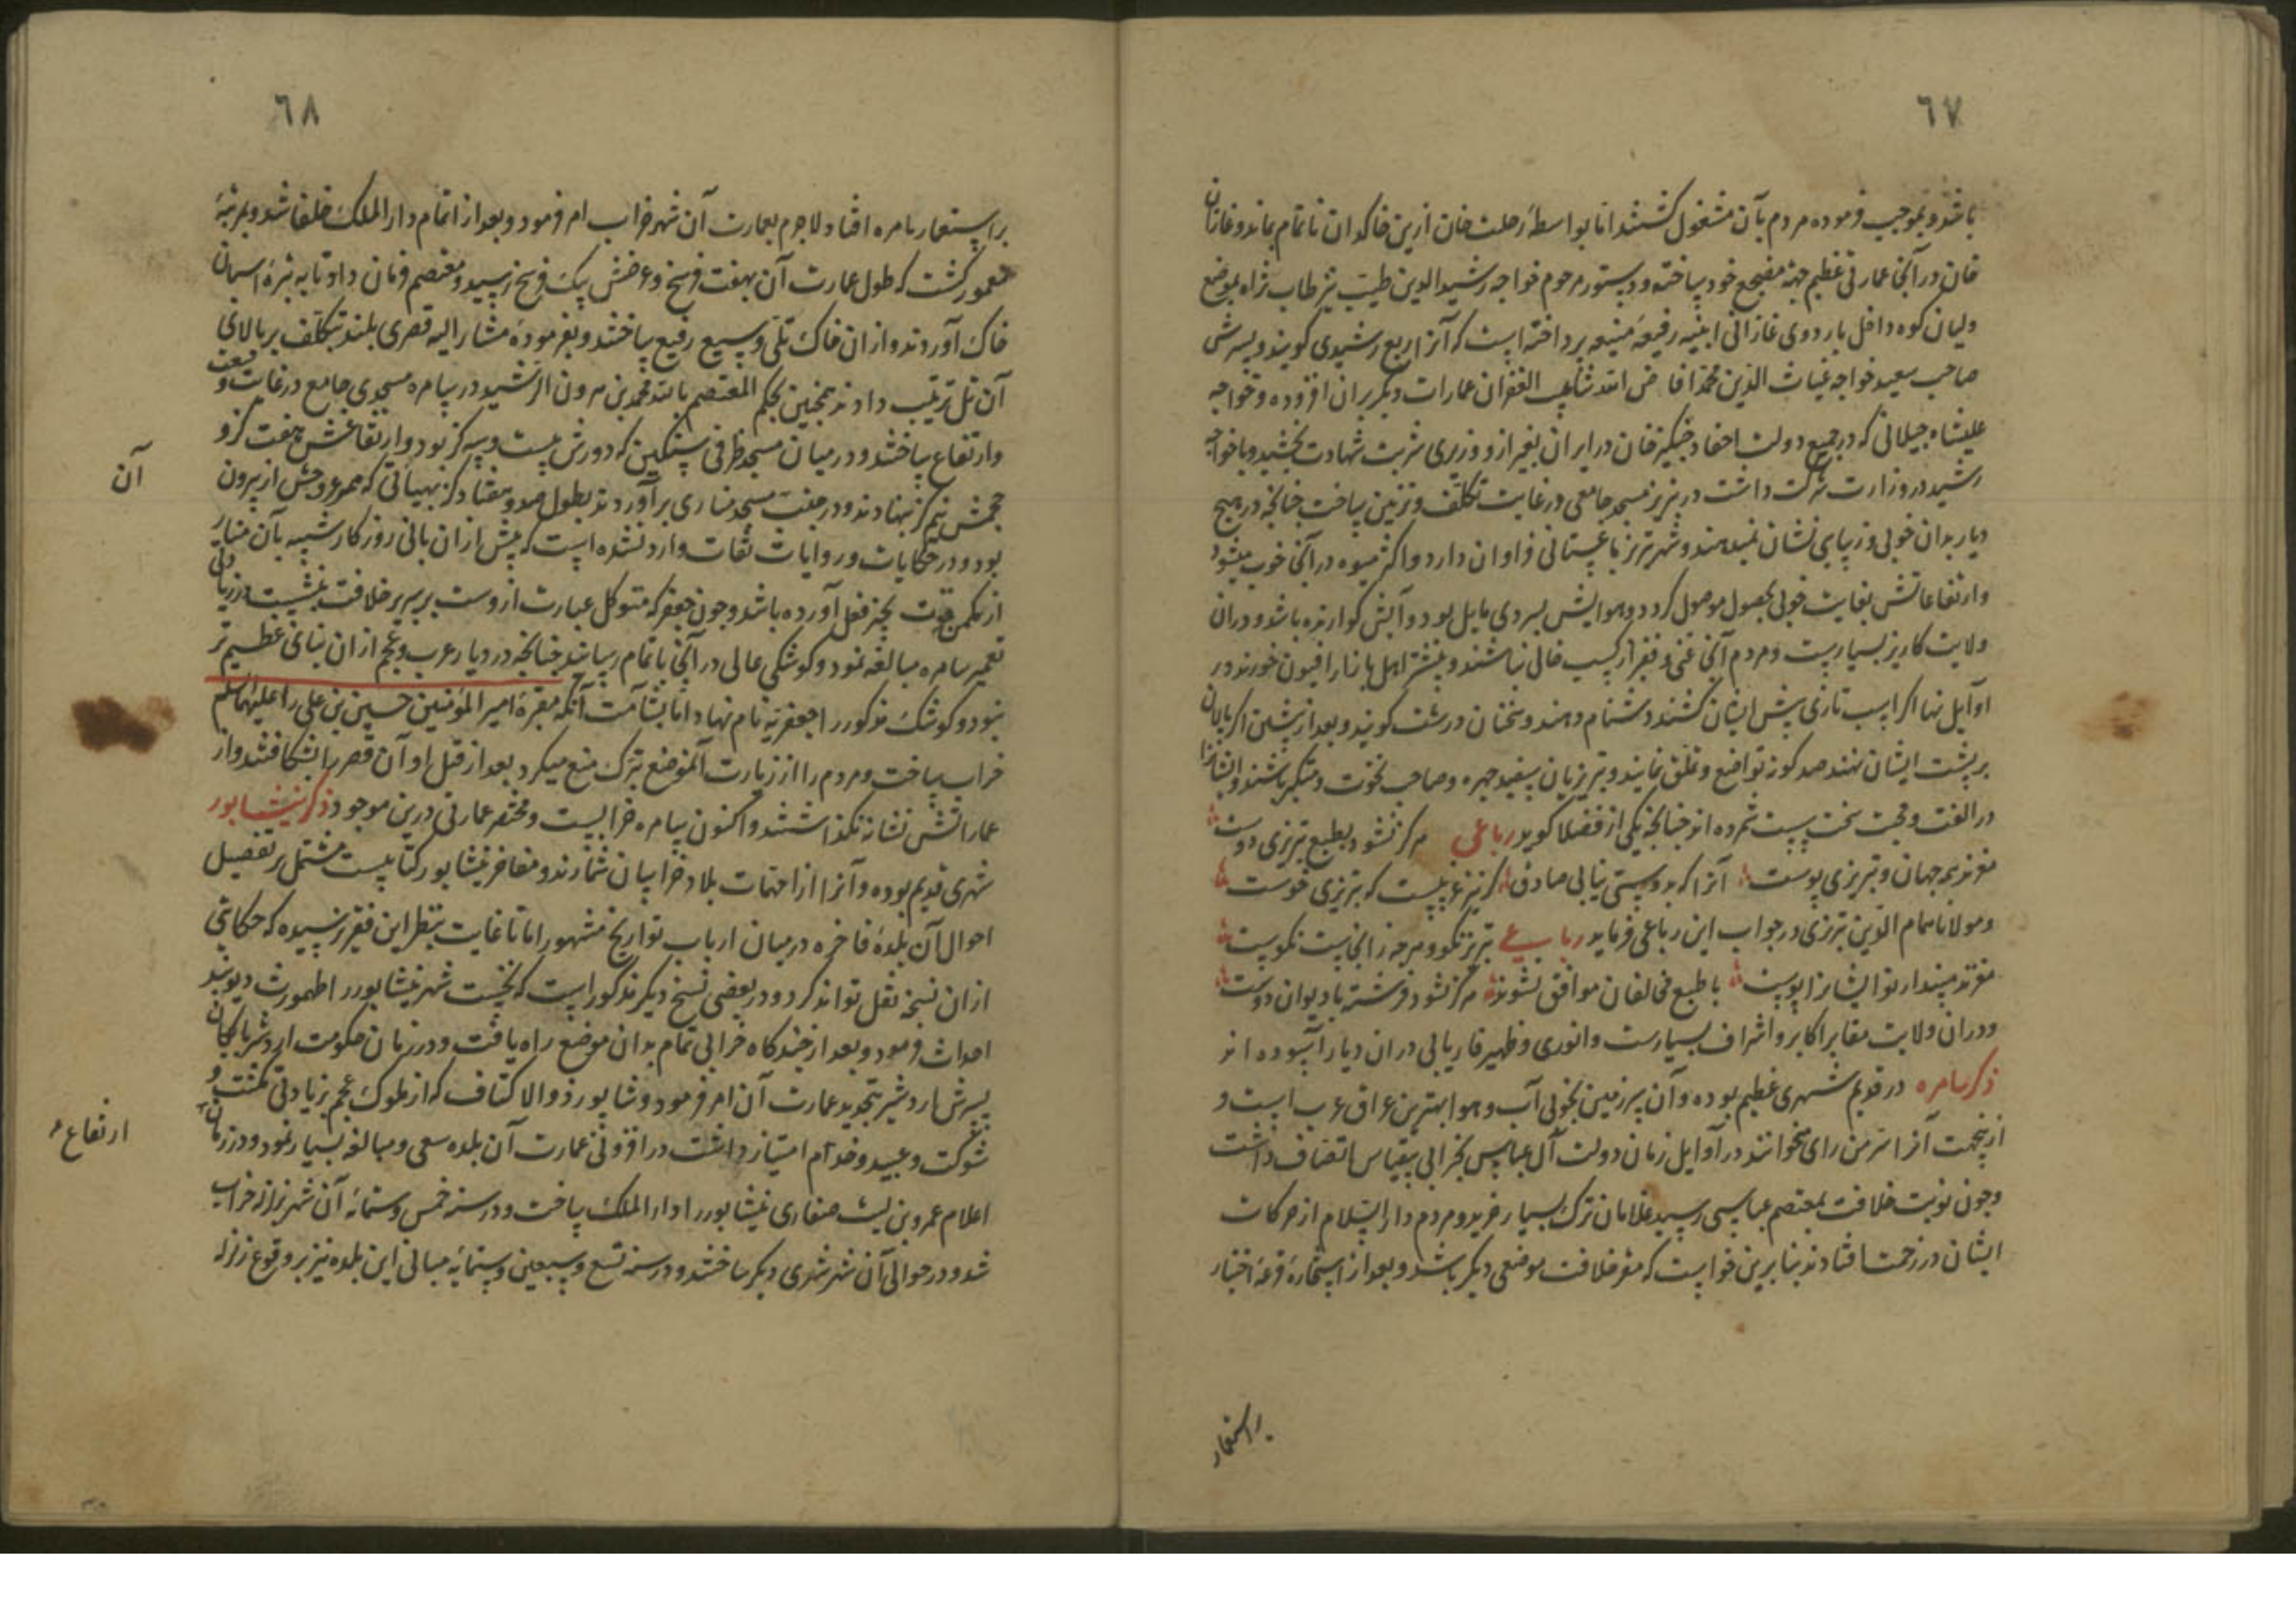 ٦٧
باشد و بموجب فرموده مردم بآن مشغول گشتند اما بواسطهٔ رحلت خان ازین خاکدان ناتمام بماند و غازان
خان در آنجا عمارتی عظیم جهة مضجع خود ساخته و دستور مرحوم خواجه رشیدالدین طبیب نیز طاب ثراه بموضع
ولیان کوه داخل باروی غازانی ابنیه رفیعه منیعه پرداخته است که آنرا ربع رشیدی کویند و پسرش
صاحب سعید خواجه غیاث الدین محمد افاض الله شآبیب الغفران عمارات دیکر بران افزوده و خواجه
علیشاه جیلانی که در جمیع دولت احفاد چنکیز خان در ایران بغیر ازو وزیری شربت شهادت نچشید و با خواجه
رشید در وزارت شرکت داشت در تبریز مسجد جامعی در غایت تکلف و تزیین ساخت چنانچه در هیچ
دیار بدان خوبی و زیبایی نشان نمیدهند و شهر تبریز باغستانی فراوان دارد و اکثر میوه در آنجا خوب میشود
وارتفاعاتش بغایت خوبی بحصول موصول کردد و هوایش بسردی مایل بود و آبش کوارنده باشد و دران
ولایت کاریز بسیارست و مردم آنجا غنی و فقیر از کسب خالی نباشند و بیشتر اهل بازار افیون خورند در
اوایل نها اکر اسب تازی پیش ایشان کشند دشنام دهند و سخنان درشت کویند و بعد از نشئتن اکر پالان
بر پشت ایشان نهند صد کونه تواضع و تملق نمایند و تبریزیان سفید چهره و صاحب نخوت و متکبر باشند و ایشانرا
در الفت و محبت سخت سست شمرده اند چنانچه یکی از فضلا کوید رباعی هرکز نشود بطبع تبریزی دوست
مغزند همه جهان و تبریزی پوست آنرا که بدوستی نیابی صادق کر نیز غریبست که تبریزی خوست
ومولانا همام الدین تبریزی در جواب این رباعی فرماید رباعی تبریز نکو و هرچه زانجاست نکوست
مغزند مپندار تو ایشانرا پوست با طبع مخالفان موافق نشوند هرکز نشود فرشته با دیوان دوست
ودران ولایت مقابر اکابر و اشراف بسیارست و انوری و ظهیر فاریابی دران دیار آسوده اند
ذکر سامره در قدیم شهری عظیم بوده و آن سرزمین بخوبی آب و هوا بهترین عراق عرب است و
ازینجهت آنرا سر من رای میخوانند در اوایل زمان دولت آل عباس بخرابی بیقیاس اتصاف داشت
وچون نوبت خلافت بمعتصم عباسی رسید غلامان ترک بسیار خرید و مردم دارالسلام از حرکات
ایشان در زحمت افتادند بنابرین خواست که مقر خلافت موضعی دیکر باشد و بعد از استخاره قرعهٔ اختیار
بر استعمار
٦٨
بر استعمار سامره افتاد لاجرم بعمارت آن شهر خراب امر فرمود و بعد از اتمام دارالملک خلفا شد و بمرتبهٔ
معمور کشت که طول عمارت آن بهفت فرسخ و عرضش بیک فرسخ رسید و معتصم فرمان داد تا به توبرهٔ اسبان
خاک آوردند و ازان خاک تلی وسیع رفیع ساختند و بفرمودهٔ مشار الیه قصری بلند بتکلف بر بالای
آن تل ترتیب دادند همچنین بحکم المعتصم بالله محمد بن هرون الرشید در سامره مسجدی جامع در غایت وسعت
وارتفاع ساختند و در میان مسجد ظرفی سنکین که دورش بیست و سه کز بود و ارتفاعش هفت کز و
آن
حجمش نیم کز بنهادند و در جنب مسجد مناری برآوردند بطول صد و هفتاد کز بهیاتی که ممر عروجش از بیرون
بود و در حکایات و روایات ثقات وارد نشده است که پیش ازان بانی روزکار شبیه بآن منار
از مکمن قوت بحیز فعل آورده باشد و چون جعفر که متوکل عبارت ازوست بر سریر خلافت بنشست در زیادتی
تعمیر سامره مبالغه نمود و کوشکی عالی در آنجا باتمام رسانید چنانچه در دیار عرب و عجم ازان بنائی عظیم تر
نبود و کوشک مذکور را جعفریه نام نهاد اما بشآمت آنکه مقبرهٔ امیر المؤمنین حسین بن علی را علیهما السلم
خراب ساخت و مردم را از زیارت آنموضع تبرک منع میکرد بعد از قتل او آن قصر را بشکافتند و از
عماراتش نشانه نکذاشتند و اکنون سامره خرابیست و مختصر عمارتی درین موجود ذکر نیشابور
شهری قدیم بوده و آنرا از امهات بلاد خراسان شمارند و مفاخر نیشابور کتابیست مشتمل بر تفصیل
احوال آن بلدهٔ فاخره در میان ارباب تواریخ مشهور اما تا غایت بنظر این فقیر نرسیده که حکایتی
ازان نسخه نقل تواند کرد و در بعضی نسخ دیکر مذکور است که نخست شهر نیشابور را طهمورث دیوبند
احداث فرمود و بعد از چندکاه خرابی تمام بدان موضع راه یافت و در زمان حکومت اردشیر بابکان
پسرش اردشیر بتجدید عمارت آن امر فرمود و شاپور ذوالاکتاف که از ملوک عجم بزیادتی مکنت و
شوکت و عبید و خدام امتیاز داشت در افزونی عمارت آن بلده سعی و مبالغه بسیار نمود و در زمان
ارتفاع
اعلام عمرو بن لیث صفاری نیشابور را دارالملک ساخت و در سنه خمس وستمائه آن شهر بزلزله خراب
شد و در حوالی آن شهر شهری دیکر ساختند و در سنه تسع و سبعین وستمایه مبانی این بلده نیز بر وقوع زلزله